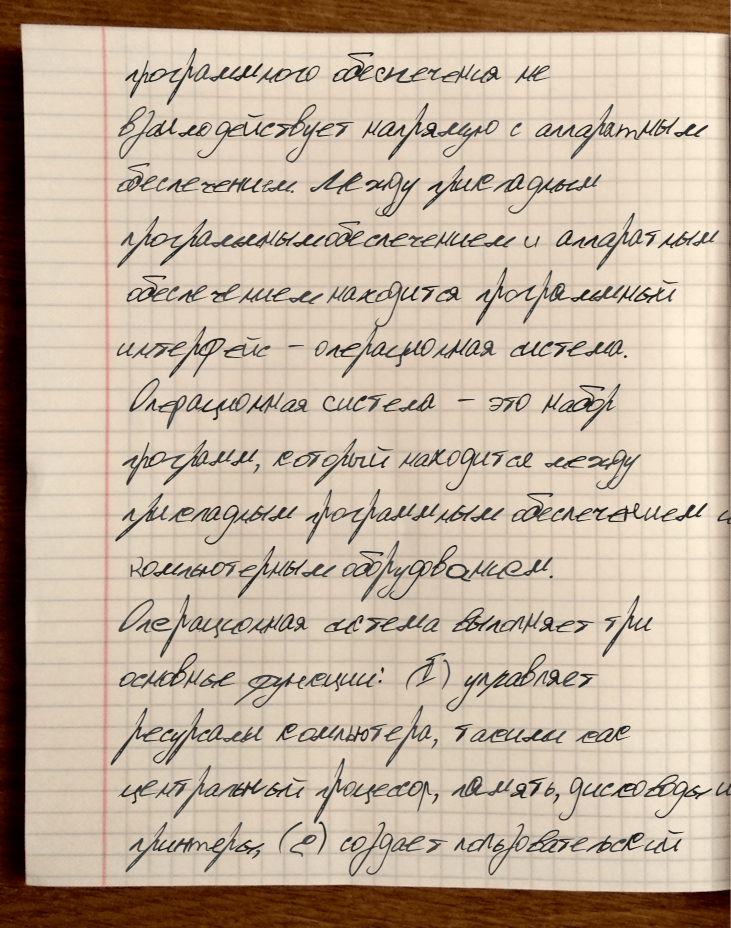 программного обеспечения не
взаимодействует напрямую с аппаратным
обеспечением. Между прикладным
программным обеспечением и аппаратным
обеспечением находится программный
интерфейс – операционная система.
Операционная система – это набор
программ, который находится между
прикладным программным обеспечением и
компьютерным оборудованием.
Операционная система выполняет три
основные функции: (1) управляет
ресурсами компьютера, такими как
центральный процессор, память, дисководы и
принтеры, (2) создает пользовательский